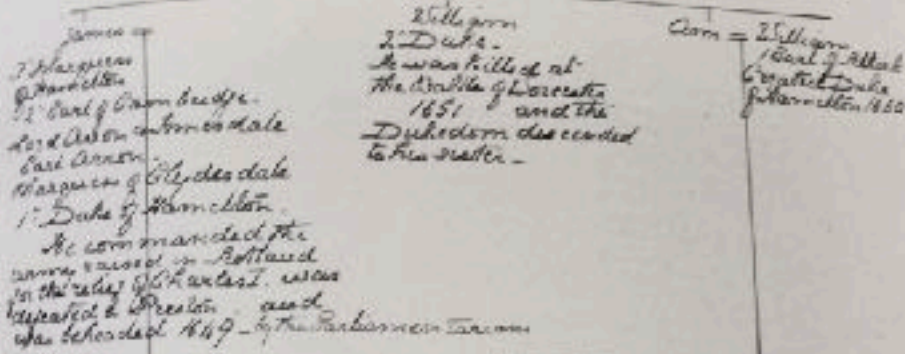 James =
3 Marquess
of Hamilton
2d Earl of Cambridge.
Lord Aven Innerdale
Earl Arran.
Marquess of Clydesdale
1st Duke of Hamilton.
He commanded the
army raised in Scotland
for the relief of Charles I. was
defeated at Preston and
was beheaded 1649 by the Parliamentarians
William
2d Duke.
He was killed at
the Battle of Worcester
1651 and the
Dukedom descended
to his sister
Ann = William
Earl of
Created Duke
of Hamilton 1660